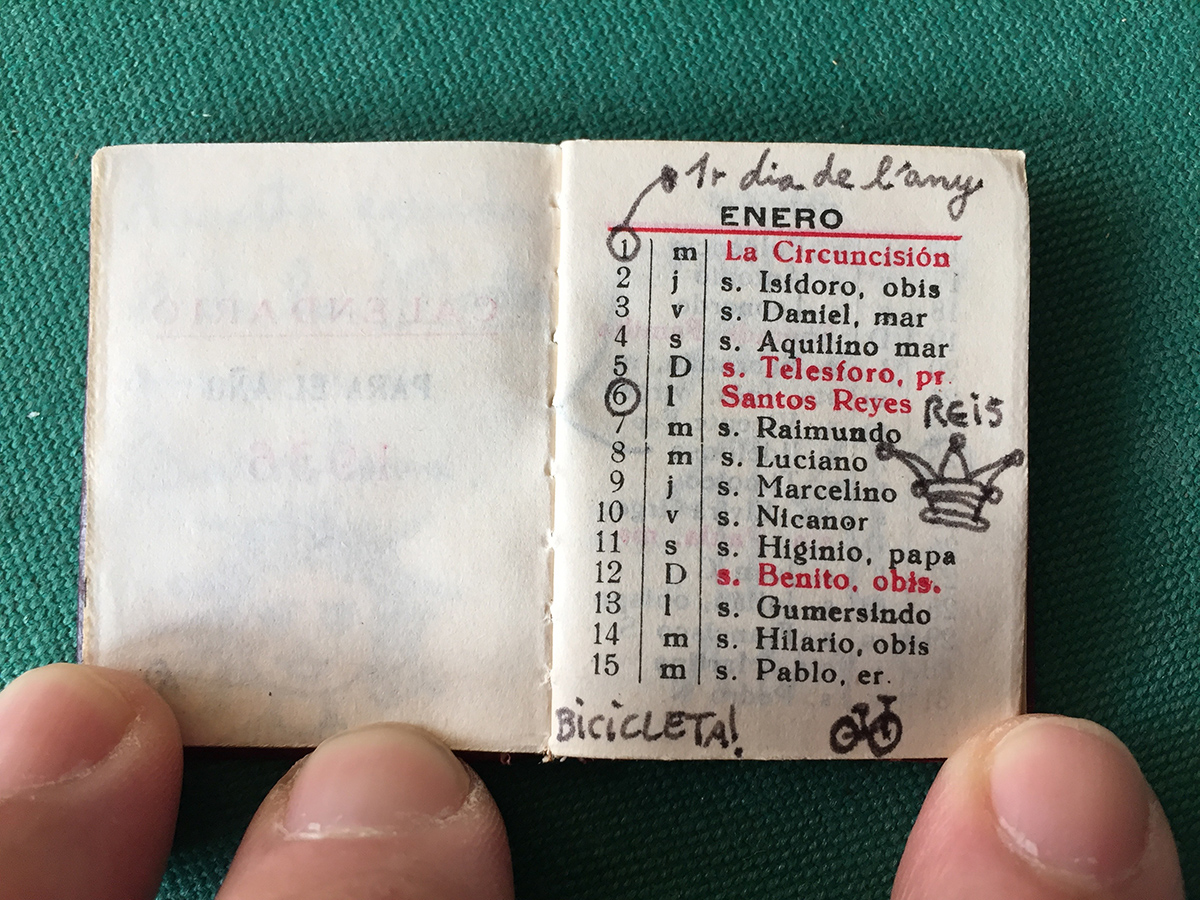 1r dia de l'any
ENERO
1 m La Circuncisión
2 j s. Isidoro, obis
3 v s. Daniel, mar
4 s s. Aquilino mar
5 D s. Telesforo, pr.
6 l Santos Reyes REIS
7 m s. Raimundo
8 m s. Luciano
9 j s. Marcelino
10 v s. Nicanor
11 s s. Higinio, papa
12 D s. Benito, obis.
13 l s. Gumersindo
14 m s. Hilario, obis
15 m s. Pablo, er.
BICICLETA!
CALENDARIO
PARA EL AÑO
1936